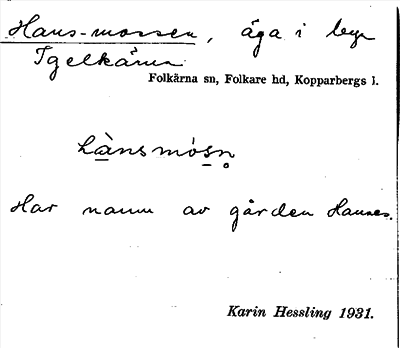 Hans-mossen, äga i byn
Igelkärna
Folkärna sn, Folkare hd, Kopparbergs l.
hànsmósn̥
Har namn av gården Hannes.
Karin Hessling 1931.